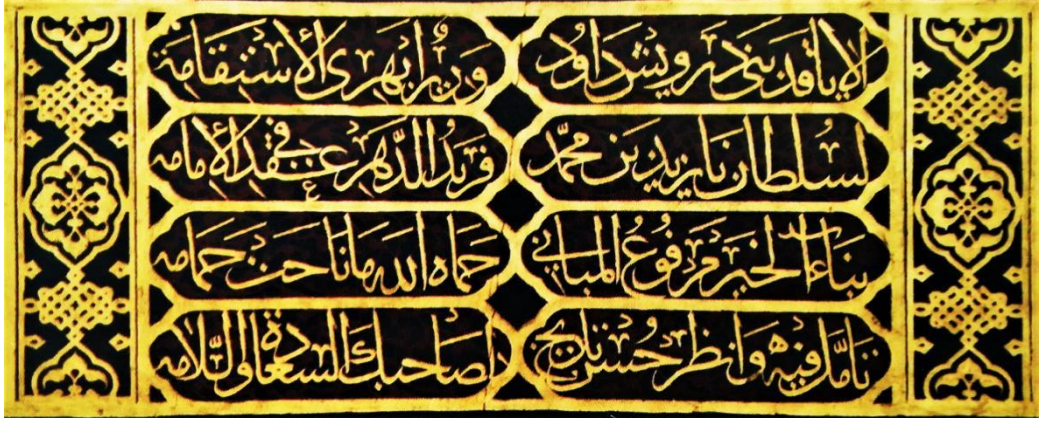 الا يا قد بنى درويش داود وزير ابهرى الاستقامة
لسلطان بايزيد بن محمد فريد الدهر في عقد الإمامه
بناء الخير مرفوع المباني حماه الله ما ناحت حمامه
تأمل فيه وانظر حسن تاريخ لصاحبك السعادة والسلامه